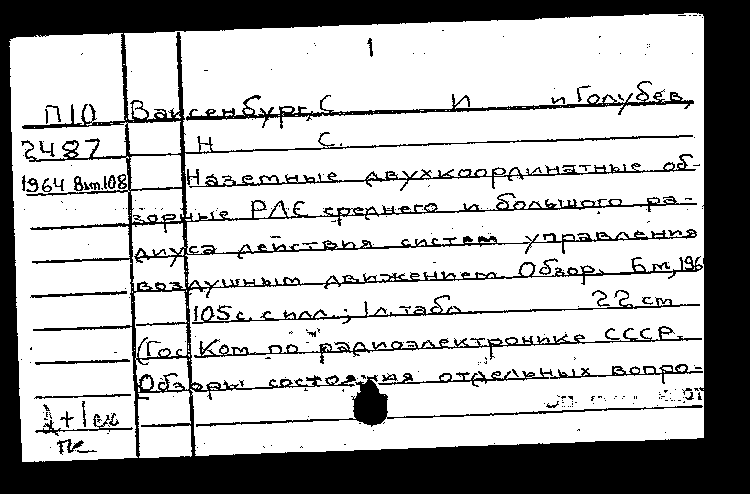 1
П10 Вайсенбург, С. И и Голубев,
2487 Н С.
1964 Вып. 108 Наземные двухкоординатные об-
зорные РЛС среднего и большого ра-
диуса действия систем управления
воздушным движением. Обзор. Б м, 196
105 с. с илл.; 1 л. табл. 22 cm
(Гос Ком по радиоэлектронике СССР.
Обзоры состояния отдельных вопро-
2+1